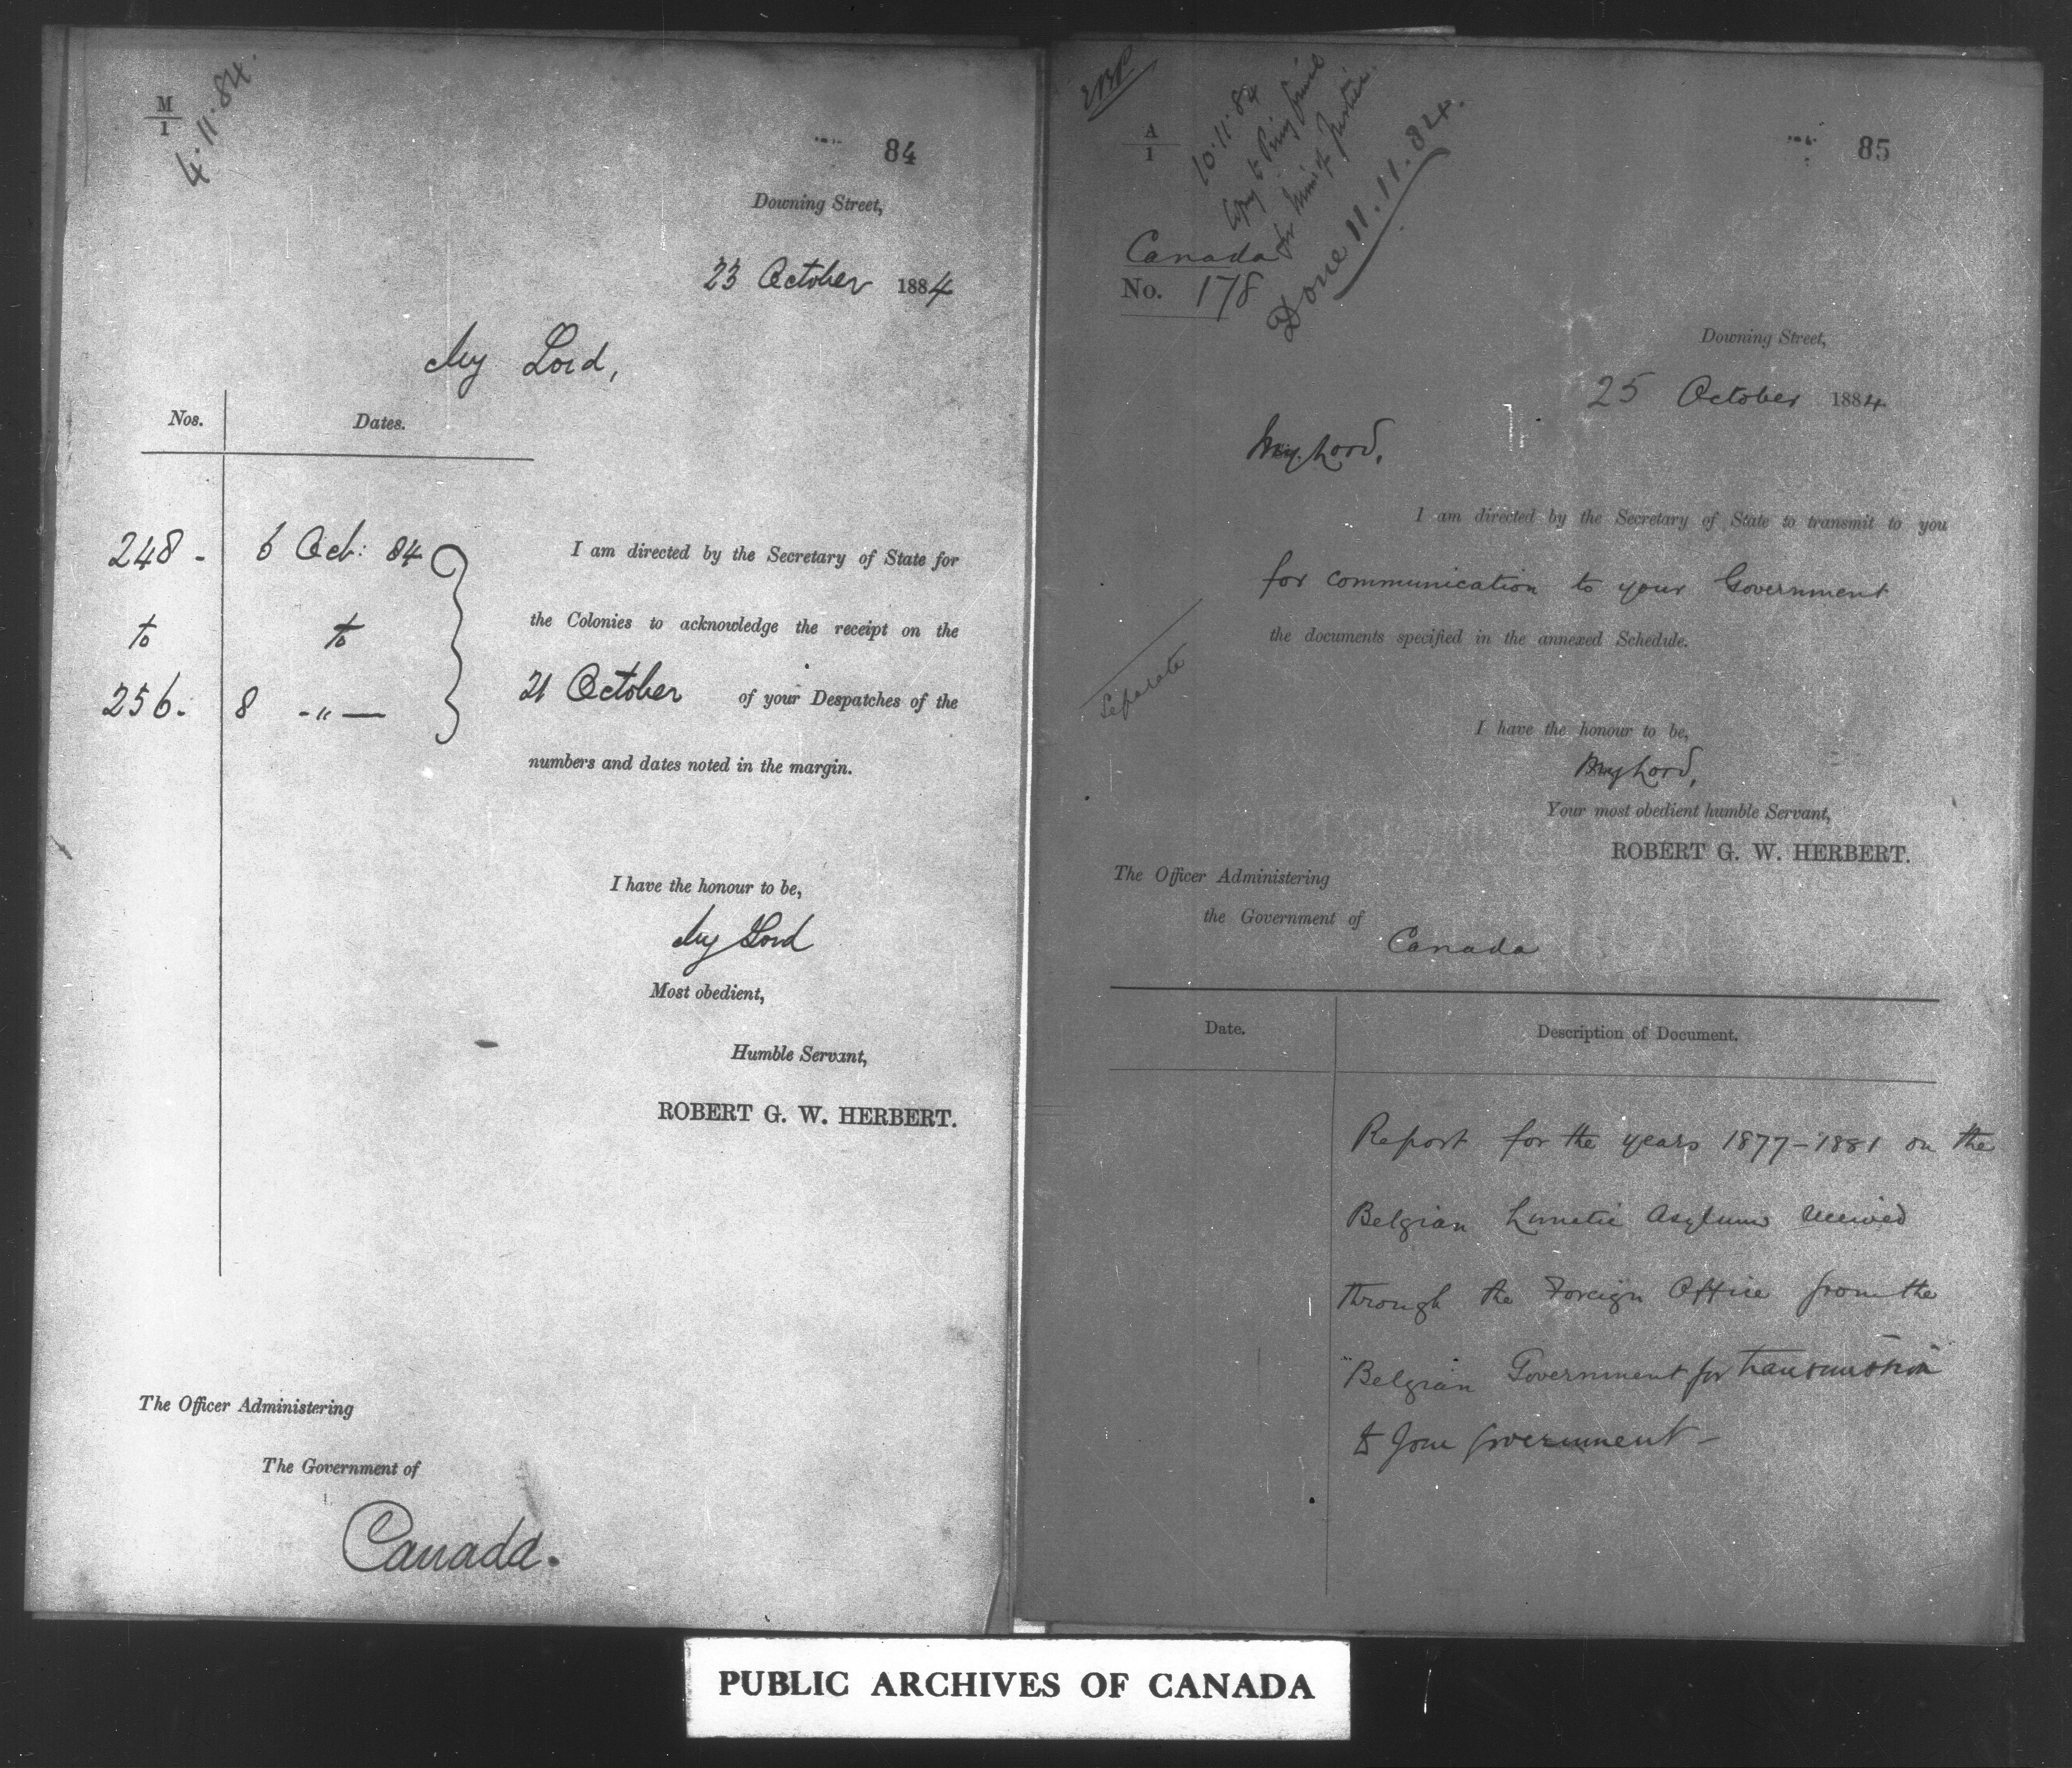 M
1
4.11.84.
84
Downing Street,
23 October 1884
My Lord,
Nos. Dates.
248 - 6 Oct: 84
to to
256. 8 -"-
I am directed by the Secretary of State for
the Colonies to acknowledge the receipt on the
21 October of your Despatches of the
numbers and dates noted in the margin.
I have the honour to be,
My Lord
Most obedient,
Humble Servant,
ROBERT G. W. HERBERT.
The Officer Administering
The Government of
Canada.
A
1
10.11.84
Copy to Privy Council
for Min of Justice.
Done 11.11.84.
85
Canada
No. 178
Downing Street,
25 October 1884
My Lord,
I am directed by the Secretary of State to transmit to you
for communication to your Government
the documents specified in the annexed Schedule.
Separate
I have the honour to be,
My Lord,
Your most obedient humble Servant,
ROBERT G. W. HERBERT.
The Officer Administering
the Government of
Canada
Date. Description of Document.
Report for the years 1877-1881 on the
Belgian Lunatic Asylums received
through the Foreign Office from the
Belgian Government for transmission
to your Government -
PUBLIC ARCHIVES OF CANADA